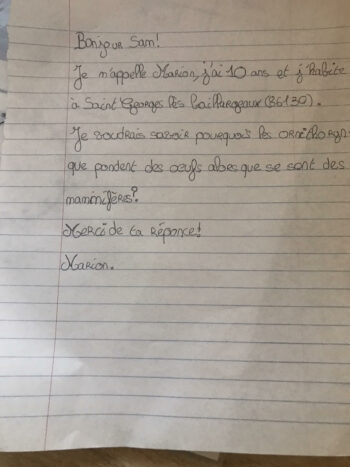 Bonjour Sam!
Je m'appelle Marion, j'ai 10 ans et j'habite
à Saint Georges lès Baillargeaux (86130).
Je voudrais savoir pourquois les ornithoryn
que pondent des œufs alors que se sont des
mammifères?
Merci de ta réponce!
Marion.